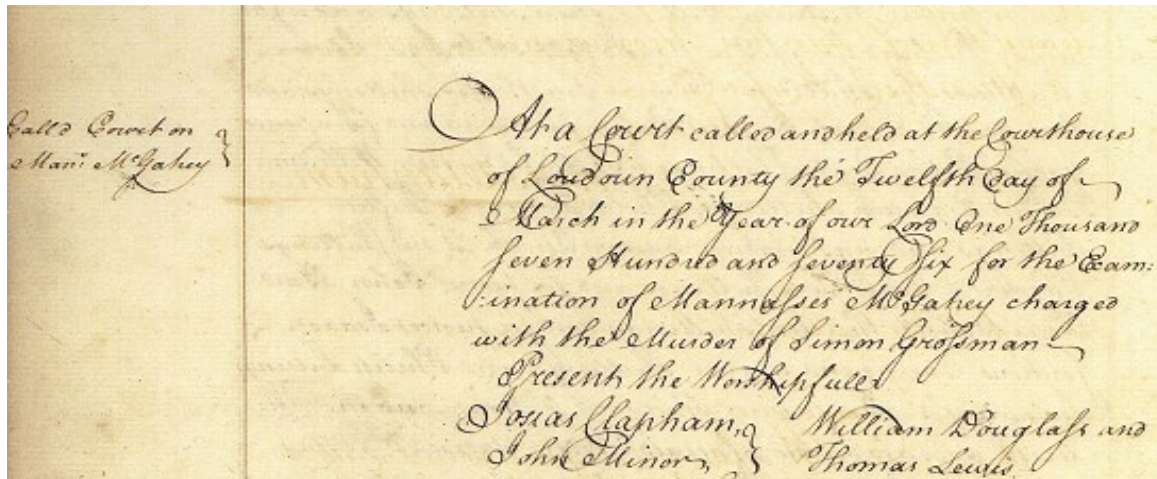 Call'd Court on
Man.s McGahey
At a Court called and held at the Courthouse
of Loudoun County the Twelfth Day of
March in the Year of our Lord One Thousand
Seven Hundred and Seventy Six for the Exam:
:ination of Mannasses McGahey charged
with the Murder of Simon Grossman
Present the Worshipfull
Josias Clapham, William Douglass and
John Minor, Thomas Lewis.